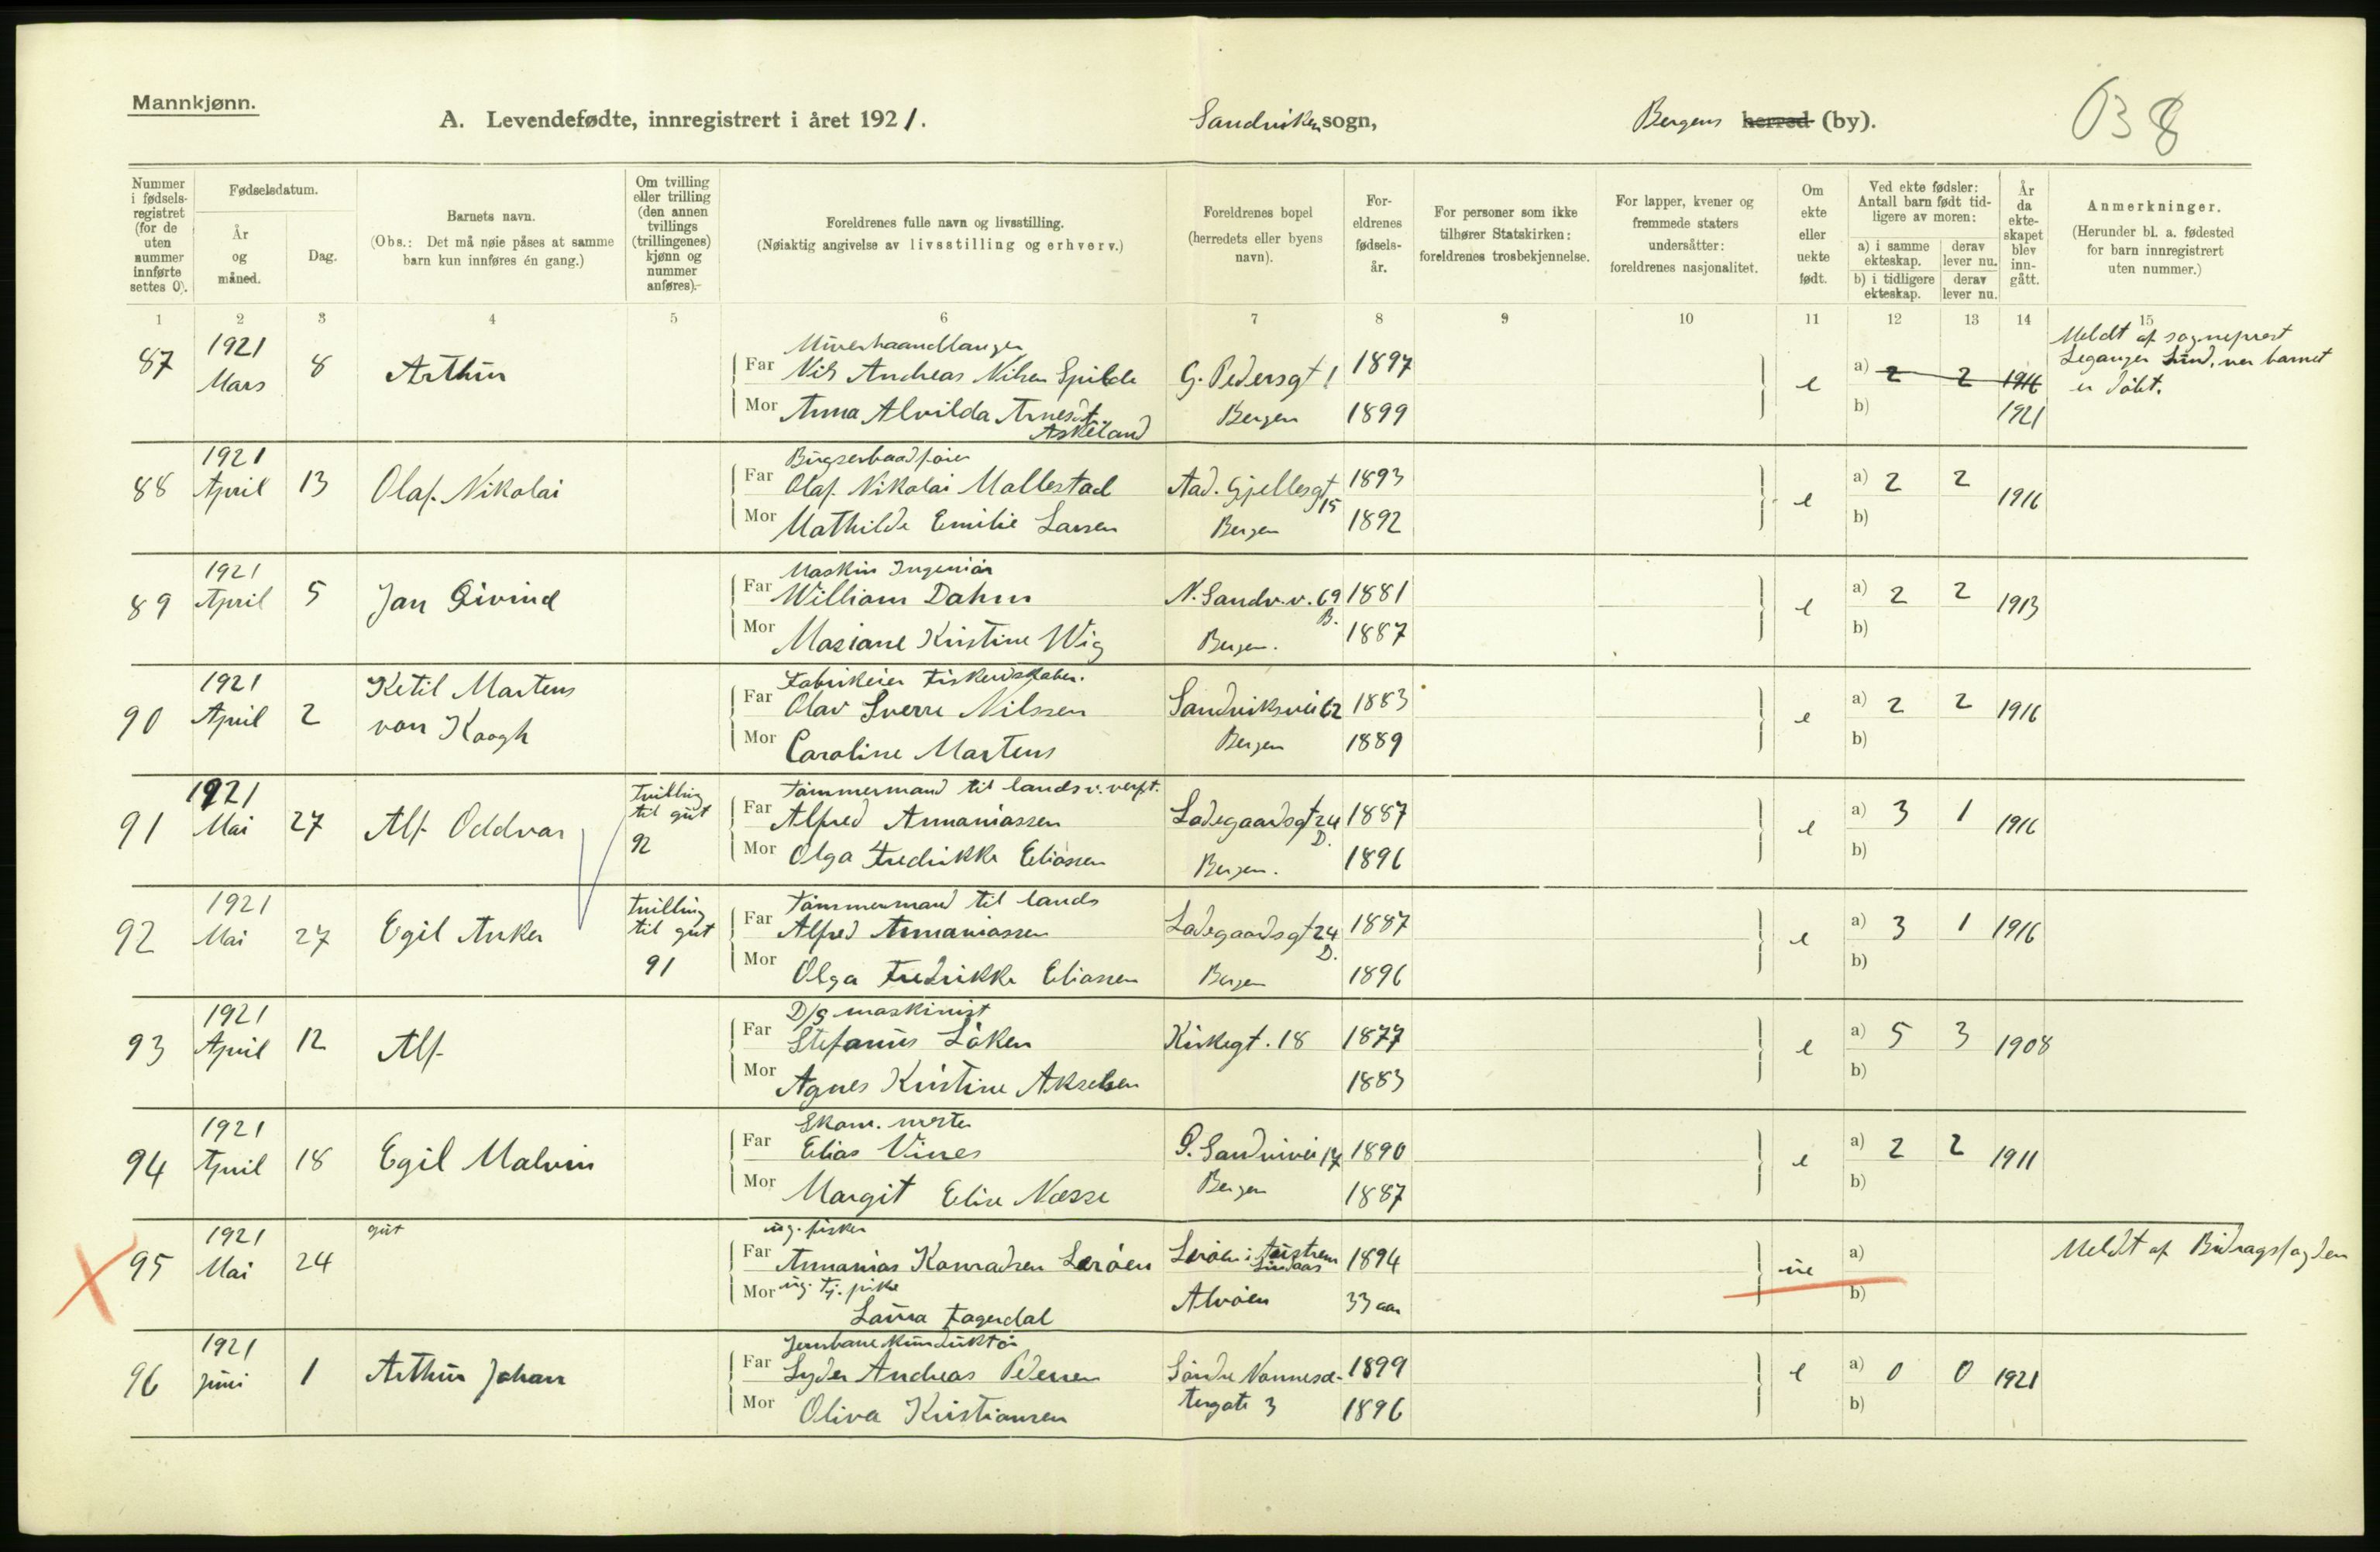 Mannkjønn.
A. Levendefødte, innregistrert i året 1921.
Sandviken sogn,
Bergens herred (by).
Nummer i fødsels-registret (for de uten nummer innførte settes 0).
Fødselsdatum.
År og måned.
Dag.
Barnets navn.
(Obs.: Det må nøie påses at samme barn kun innføres én gang.)
Om tvilling eller trilling (den annen tvillings (trillingenes) kjønn og nummer anføres).
Foreldrenes fulle navn og livsstilling.
(Nøiaktig angivelse av livsstilling og erhverv.)
Foreldrenes bopel (herredets eller byens navn).
For-eldrenes fødsels-år.
For personer som ikke tilhører Statskirken: foreldrenes trosbekjennelse.
For lapper, kvener og fremmede staters undersåtter: foreldrenes nasjonalitet.
Om ekte eller uekte født.
Ved ekte fødsler: Antall barn født tid-ligere av moren:
a) i samme ekteskap.
derav lever nu.
b) i tidligere ekteskap.
derav lever nu.
År da ekte-skapet blev inn-gått.
Anmerkninger.
(Herunder bl. a. fødested for barn innregistrert uten nummer.)
1 2 3 4 5 6 7 8 9 10 11 12 13 14 15
87 1921 Mars 8 Arthur
Murerhaandlanger
Far Nils Andreas Nilsen Spilde G. Pedersgt 1 1897
Mor Anna Alvilda Arnesdt Askeland Bergen 1899
e a) 2 2 1916
b) 1921
Meldt af sogneprest
Leganger Lund, var barnet
er døbt.
88 1921 April 13 Olaf Nikolai
Far Olaf Nikolai Mallestad Aad. Gjellesgt 15 1893
Mor Mathilde Emilie Larsen Bergen 1892
e a) 2 2 1916
b)
89 1921 April 5 Jan Eivind
Maskin Ingeniør
Far William Dahm N. Sandv.v. 69 B. 1881
Mor Mariane Kristine Wig Bergen. 1887
e a) 2 2 1913
b)
90 1921 April 2 Ketil Martens
van Koogh
Fabrikeier Fiskeredskaber.
Far Olav Sverre Nilssen Sandviksvei 62 1883
Mor Caroline Martens Bergen 1889
e a) 2 2 1916
b)
91 1921 Mai 27 Alf Oddvar
Tvilling til gut 92
Tømmermand til lands v. verft.
Far Alfred Annaniassen Ladegaardsgt 24 D. 1887
Mor Olga Fredrikke Eliassen Bergen. 1896
e a) 3 1 1916
b)
92 1921 Mai 27 Egil Anker
Tvilling til gut 91
Tømmermand til lands
Far Alfred Annaniassen Ladegaardsgt 24 D. 1887
Mor Olga Fredrikke Eliassen Bergen 1896
e a) 3 1 1916
b)
93 1921 April 12 Alf
D/S maskinist
Far Stefanus Løken Kirkegt. 18 1877
Mor Agnes Kristine Akselsen 1883
e a) 5 3 1908
b)
94 1921 April 18 Egil Malvin
Far Elias Vines Bergen 1890
Mor Margit Elise Næsse 1887
e a) 2 2 1911
b)
95 1921 Mai 24 gut
ug. fisker
Far Annanias Konradsen Lerøen Lerøen i Austrem 1894
Mor ug. tj. pike
Laura Fagerdal Alvøen 33 aar
ue a)
b)
Meldt af Bidragsfogden
96 1921 Juni 1 Arthur Johan
Jernbanekunduktør
Far Lyder Andreas Pedersen Søndre Vannesd- 1899
Mor Oliva Kristiansen tergate 3 1896
e a) 0 0 1921
b)